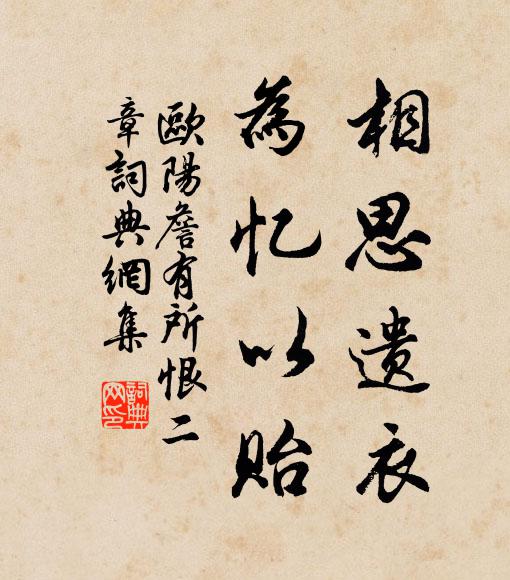 相思遗衣
為忆以贻
歐陽詹有所恨二
章詞典網集
詞典
网印